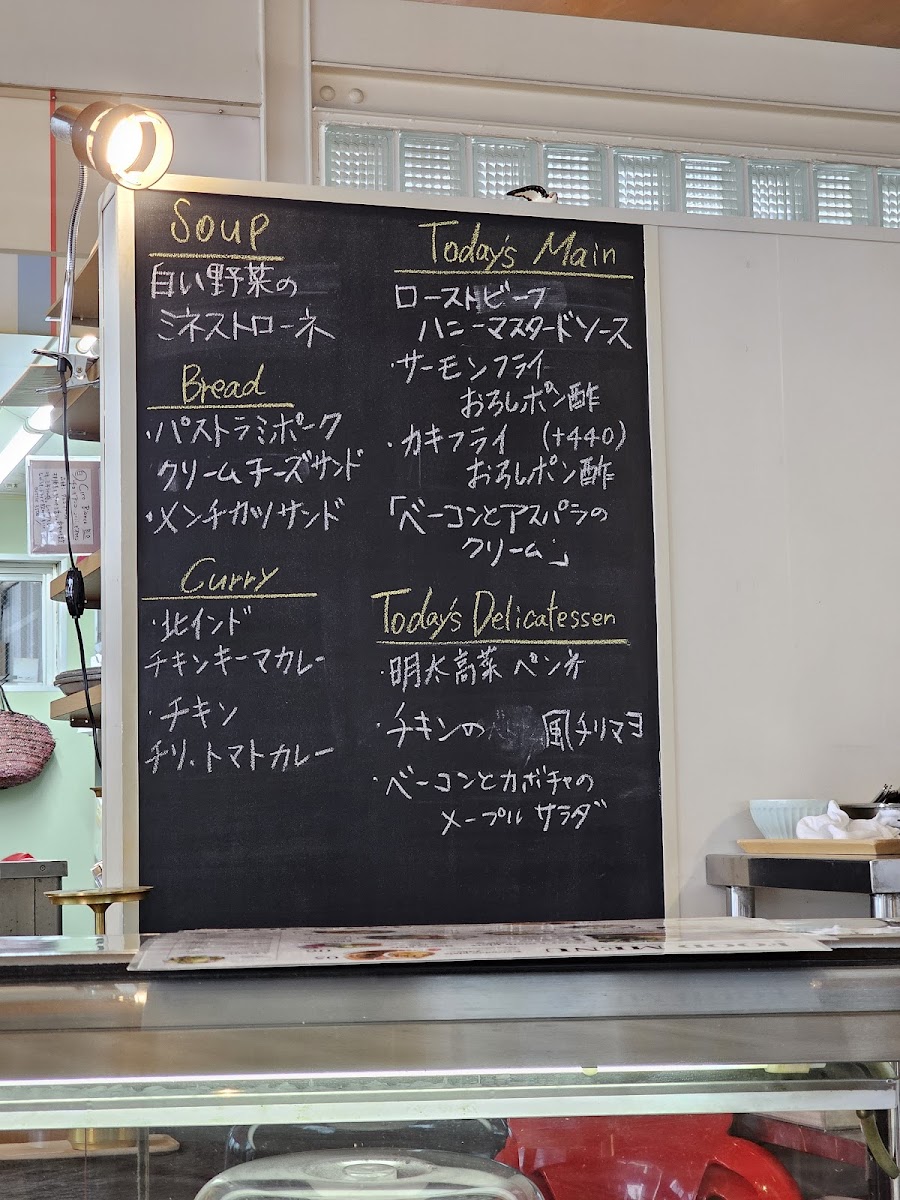 Soup
白い野菜の
ミネストローネ
Bread
・パストラミポーク
クリームチーズサンド
・メンチカツサンド
Curry
・北インド
チキンキーマカレー
・チキン
チリ、トマトカレー
Today's Main
ローストビーフ
ハニーマスタードソース
・サーモンフライ
おろしポン酢
・カキフライ (+440)
おろしポン酢
「ベーコンとアスパラの
クリーム」
Today's Delicatessen
・明太高菜 ペンネ
・チキンの 風チリマヨ
・ベーコンとカボチャの
メープル サラダ
FOOD MENU